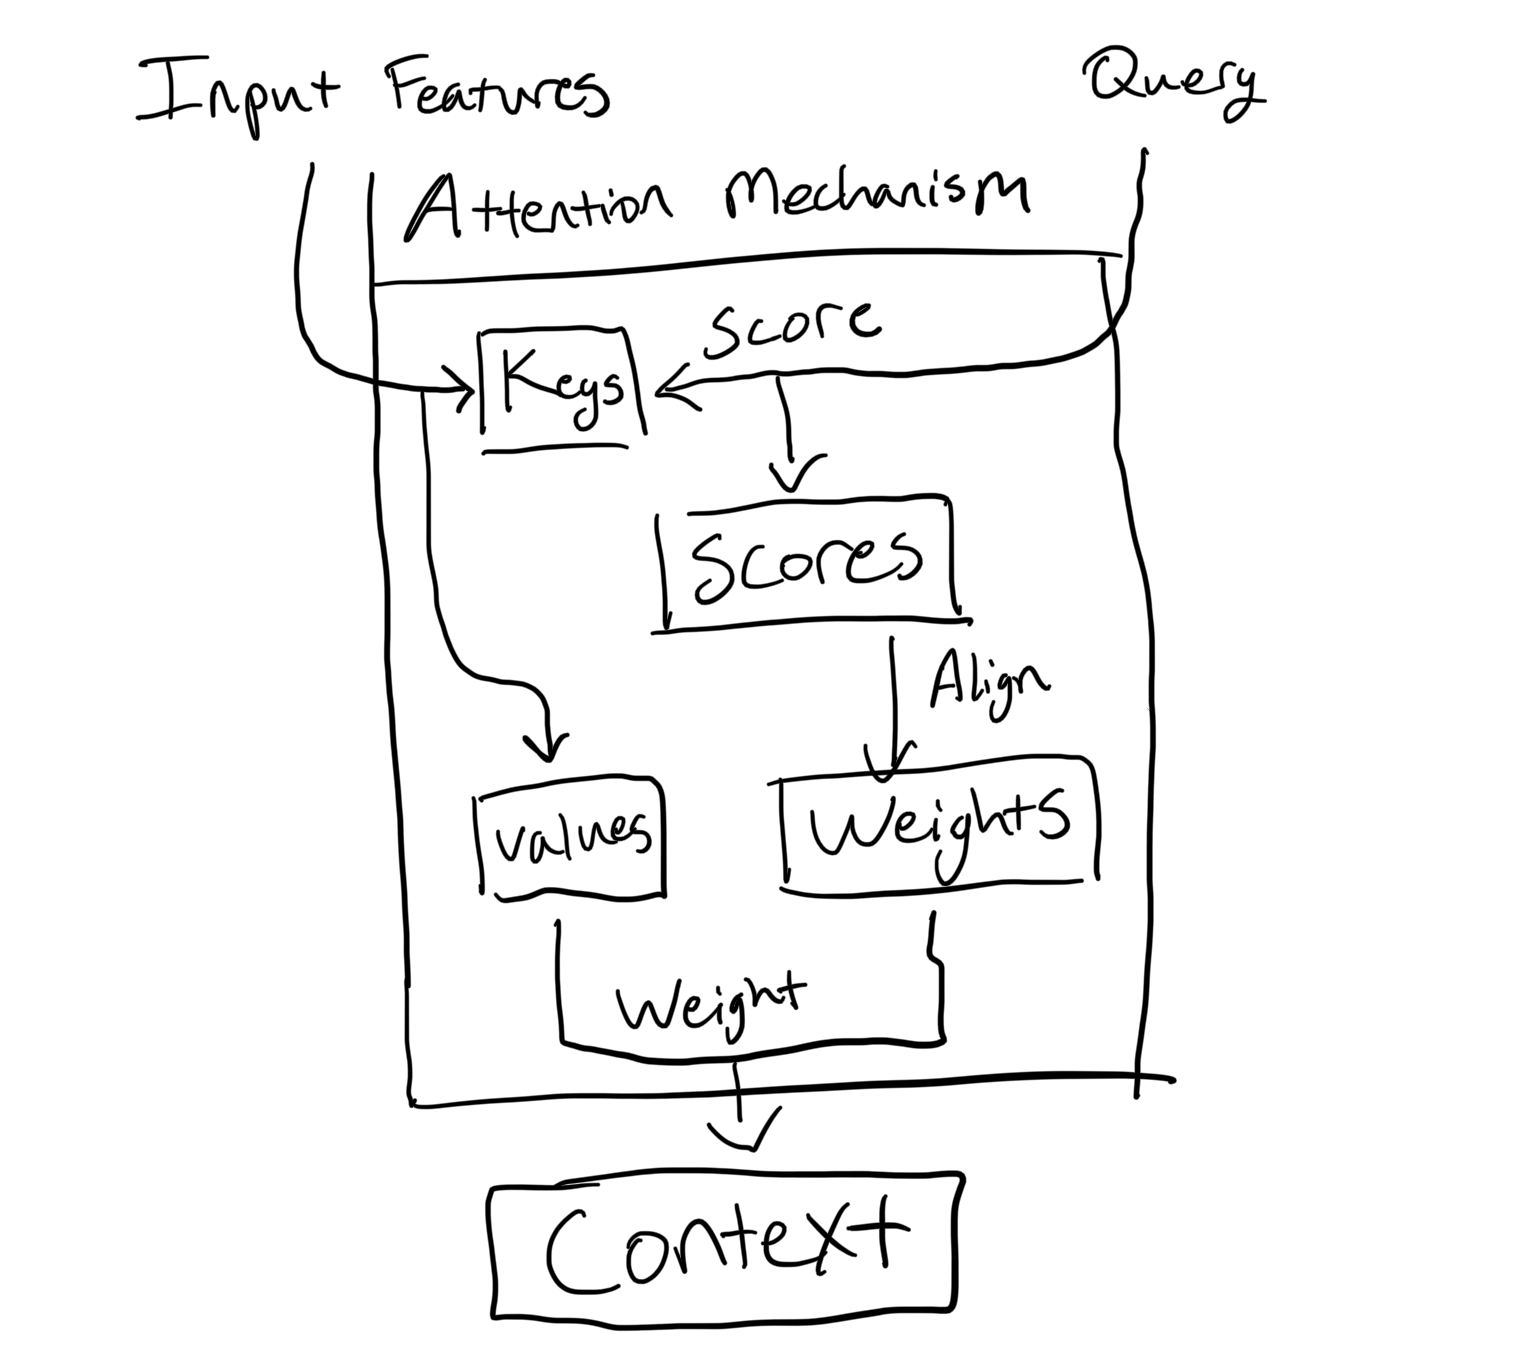 Input Features
Query
Attention Mechanism
Score
Keys
Scores
Align
Values
Weights
Weight
Context